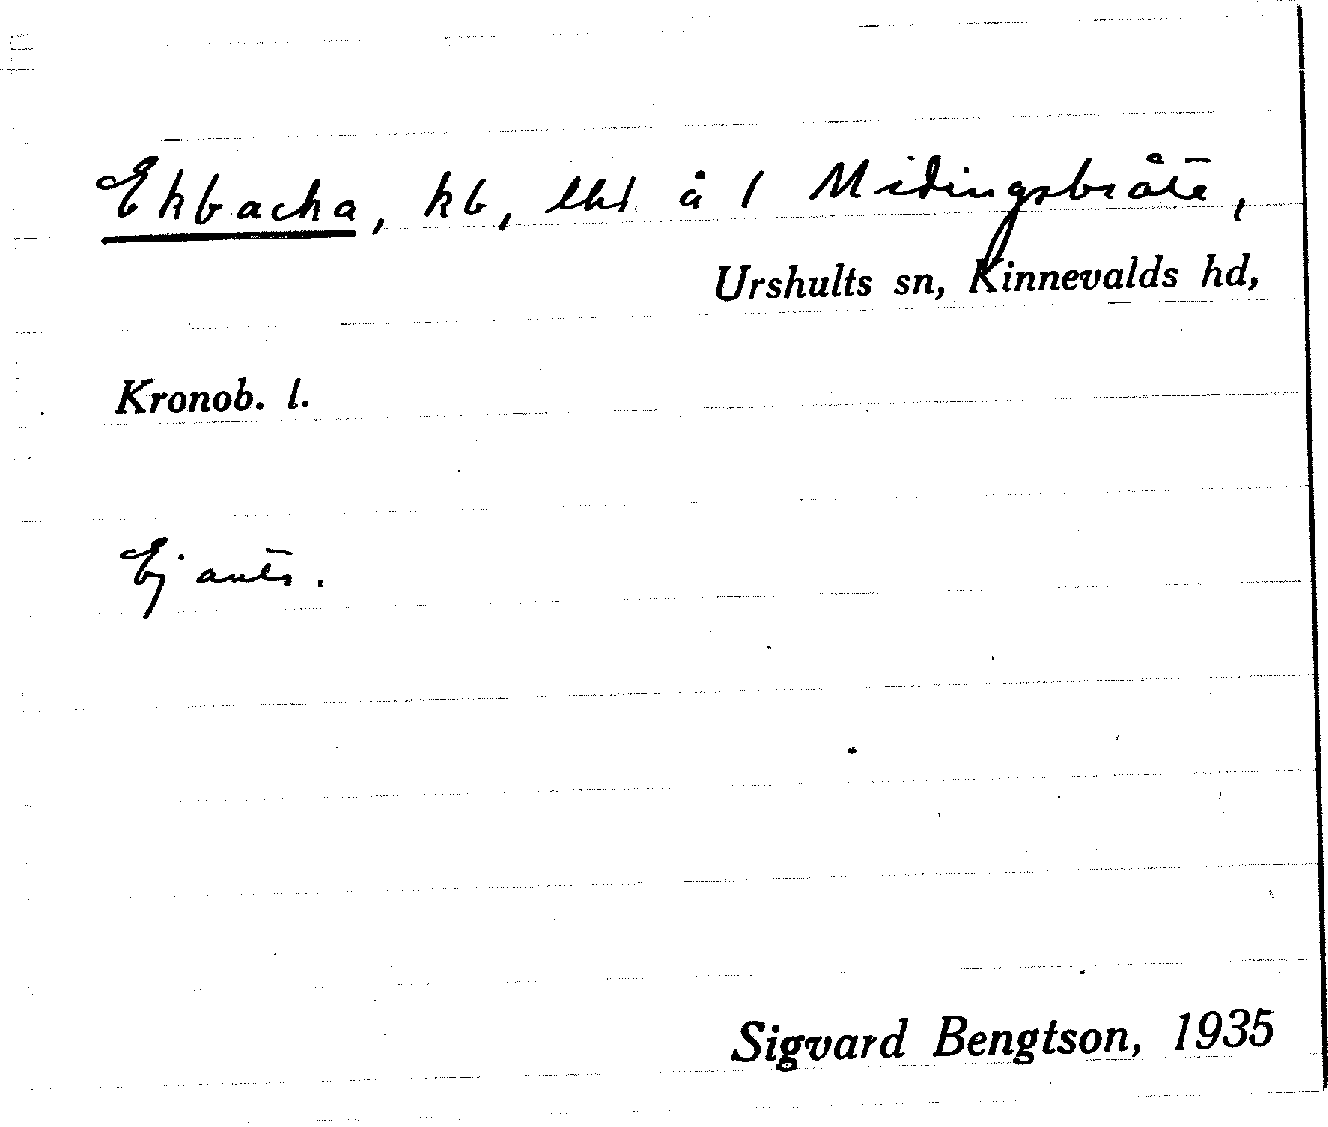 Ekbacka, kb, lht å 1 Midingsbråte,
Urshults sn, Kinnevalds hd,
Kronob. l.
Ej antr.
Sigvard Bengtson, 1935